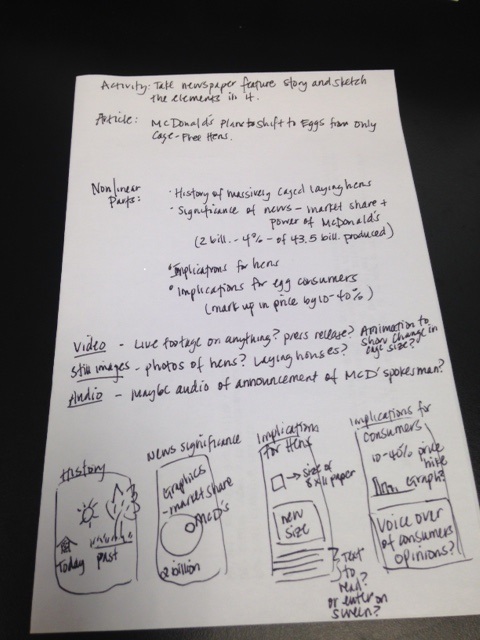 Activity: Take newspaper feature story and sketch
the elements in it.
Article: McDonald's Plans to Shift to Eggs from Only
Cage-Free Hens.
Nonlinear
Parts:
· History of massively caged laying hens
· Significance of news - market share +
power of McDonald's
(2 bill. - 4% - of 43.5 bill. produced)
· Implications for hens
· Implications for egg consumers
(mark up in price by 10-40%)
Video - Live footage on anything? press release? Animation to
show change in
cage size?
Still images - photos of hens? Laying houses?
Audio - Maybe audio of announcement of McD' spokesman?
History
Today past
News significance
Graphics
- market share
McD's
2 billion
Implications
for Hens
→ size of
8 x 11 paper
new
size
Text
to
read?
or enter on
screen?
Implications for
consumers
10-40% price
hike
Graph?
Voice over
of consumers
opinions?